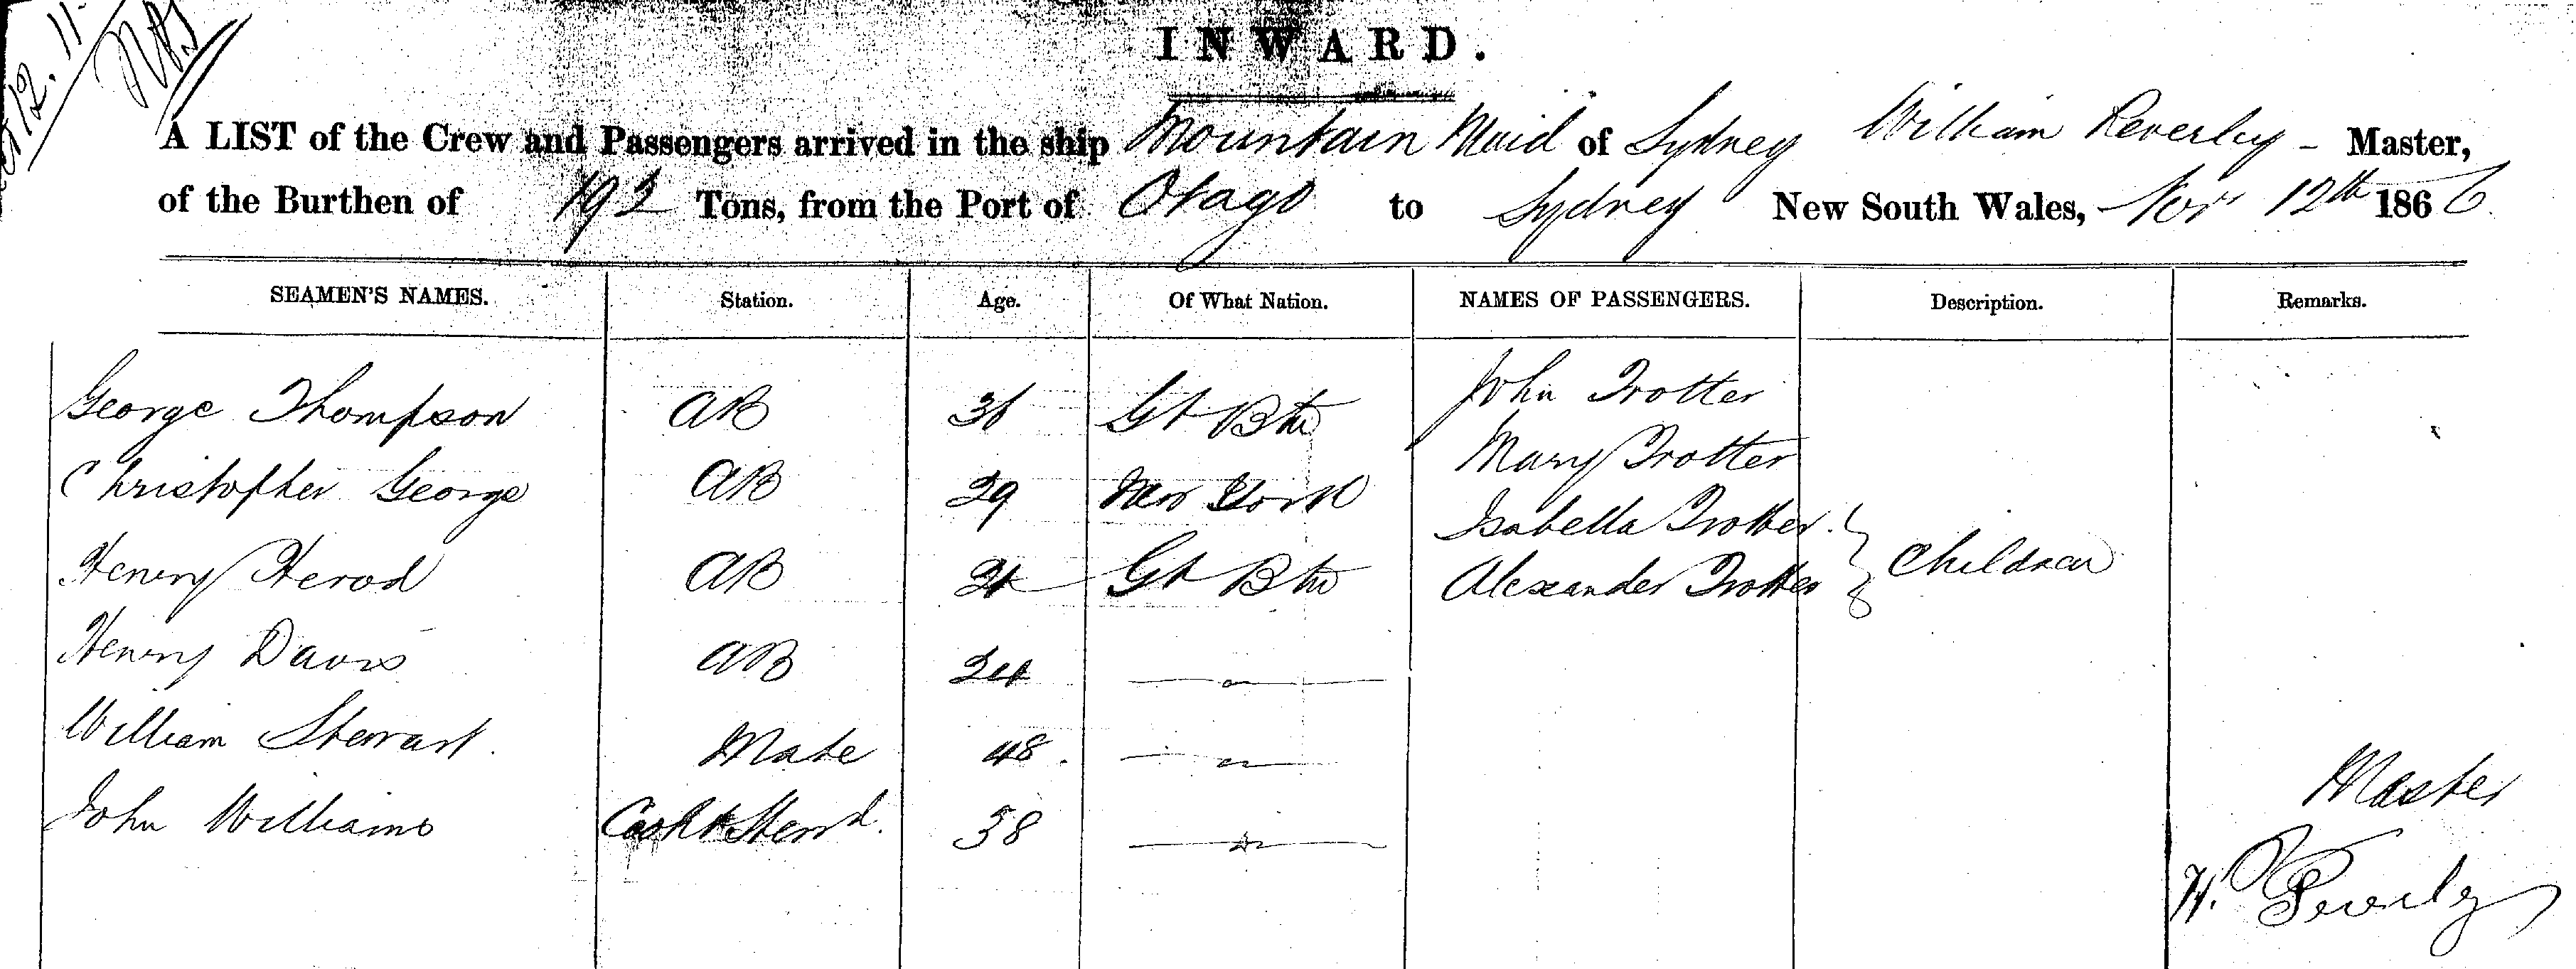 12. 11.
INWARD.
A LIST of the Crew and Passengers arrived in the ship Mountain Maid of Sydney William Beverley - Master,
of the Burthen of 192 Tons, from the Port of Otago to Sydney New South Wales, Nov 12th 1866
SEAMEN'S NAMES. Station. Age. Of What Nation. NAMES OF PASSENGERS. Description. Remarks.
George Thompson AB 36 Gt Btn John Trotter
Mary Trotter
Christopher George AB 29 New York
Isabella Trotter.
Henry Herod AB Gt Btn Alexander Trotter Children
Henry Davis AB 24 — " —
William Stewart. Mate 48. — " —
Master
John Williams Cook & Stewd. 38 — " —
W. Beverley